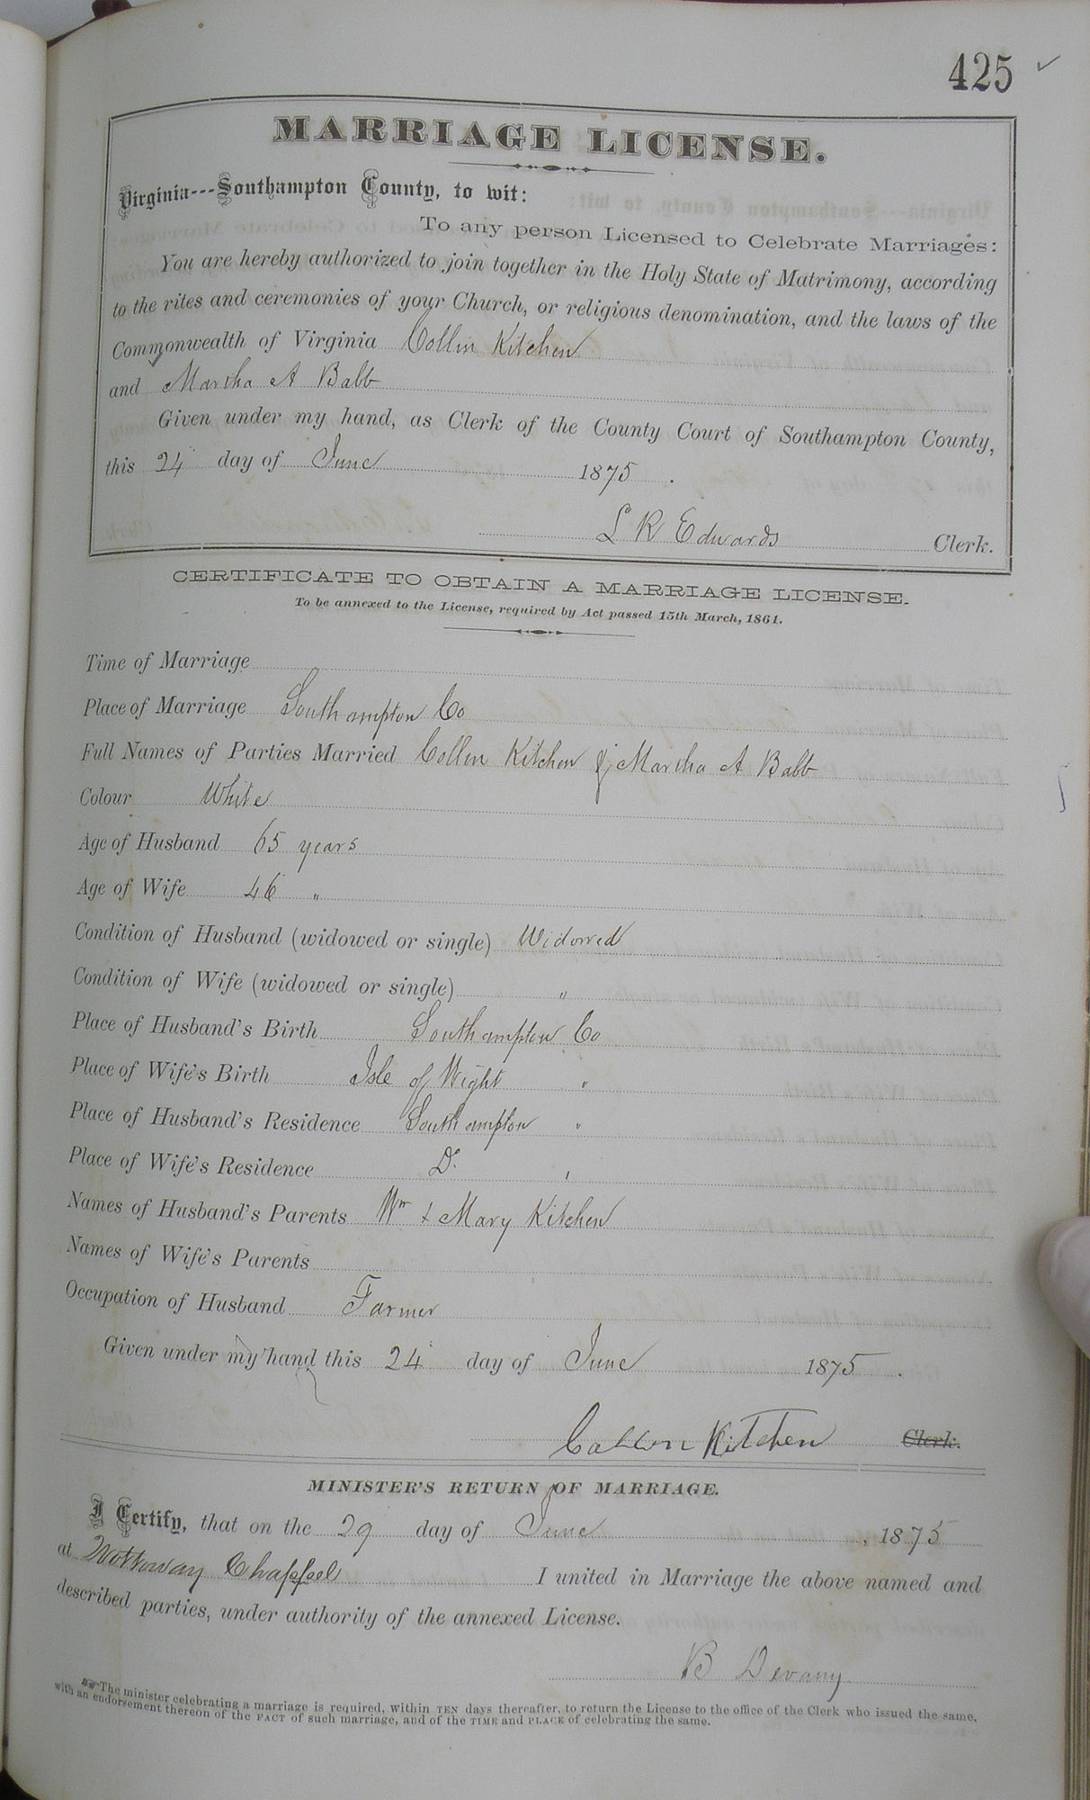 425 ✓
MARRIAGE LICENSE.
Virginia---Southampton County, to wit:
To any person Licensed to Celebrate Marriages:
You are hereby authorized to join together in the Holy State of Matrimony, according
to the rites and ceremonies of your Church, or religious denomination, and the laws of the
Commonwealth of Virginia Collin Kitchen
and Martha A Babb
Given under my hand, as Clerk of the County Court of Southampton County,
this 24 day of June 1875.
L R Edwards Clerk.
CERTIFICATE TO OBTAIN A MARRIAGE LICENSE.
To be annexed to the License, required by Act passed 15th March, 1861.
Time of Marriage
Place of Marriage Southampton Co
Full Names of Parties Married Collin Kitchen & Martha A Babb
Colour White
Age of Husband 65 years
Age of Wife 46 "
Condition of Husband (widowed or single) Widowed
Condition of Wife (widowed or single) "
Place of Husband's Birth Southampton Co
Place of Wife's Birth Isle of Wight "
Place of Husband's Residence Southampton "
Place of Wife's Residence Do "
Names of Husband's Parents Wm & Mary Kitchen
Names of Wife's Parents
Occupation of Husband Farmer
Given under my hand this 24 day of June 1875.
Kitchen Clerk.
MINISTER'S RETURN OF MARRIAGE.
I Certify, that on the 29 day of June, 1875
at Nottoway Chappel I united in Marriage the above named and
described parties, under authority of the annexed License.
B Devany
The minister celebrating a marriage is required, within TEN days thereafter, to return the License to the office of the Clerk who issued the same,
with an endorsement thereon of the FACT of such marriage, and of the TIME and PLACE of celebrating the same.